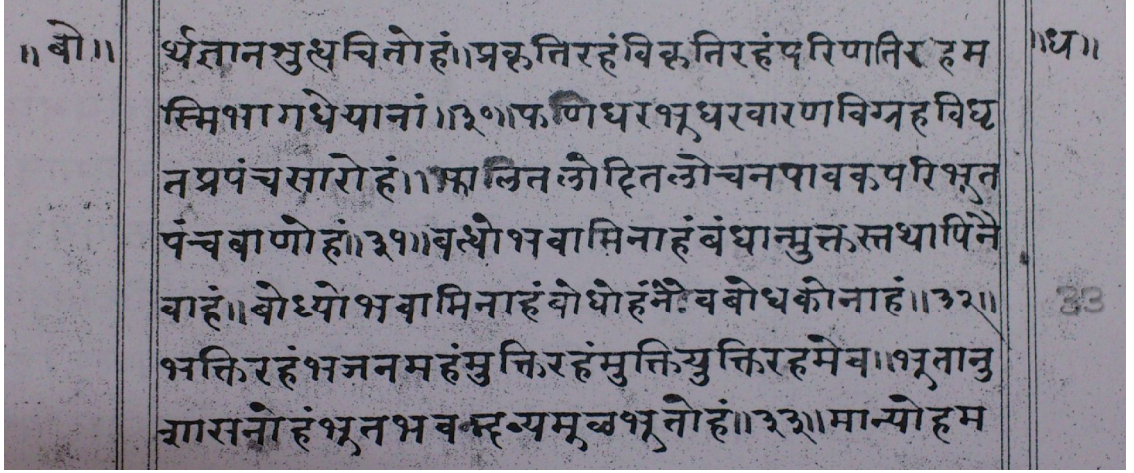 ॥बो॥ र्थज्ञानशुत्धचितोहं॥प्रकृतिरहंविकृतिरहंपरिणतिरहम ॥ध॥
स्मिभागधेयानां॥३०॥फणिधरभुधरवारणविग्रहविधृ
तप्रपंचसारोहं॥फालितलोहितलोचनपावकपरिभुत
पंचबाणोहं॥३१॥बत्धोभवामिनाहंबंधान्मुक्तस्तथापिनै
वाहं॥बोध्योभवामिनाहंबोधोहंनैवबोधकोनाहं॥३२॥ 33
भक्तिरहंभजनमहंमुक्तिरहंमुक्तियुक्तिरहमेव॥भुतानु
शासनोहंभुतभवद्भव्यमुळभुतोहं॥३३॥मान्योहम